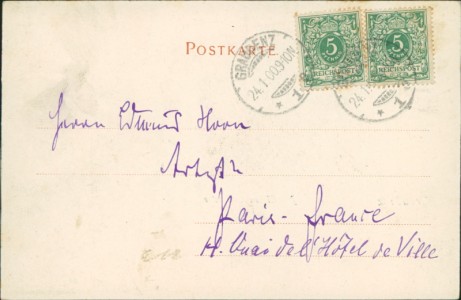 POSTKARTE
5 5
REICHSPOST
GRAUDENZ
24.1.00.9-10N.
* 1
24.1
Herrn Edmund Horn
Paris-France
14. Quai de l'Hôtel de Ville